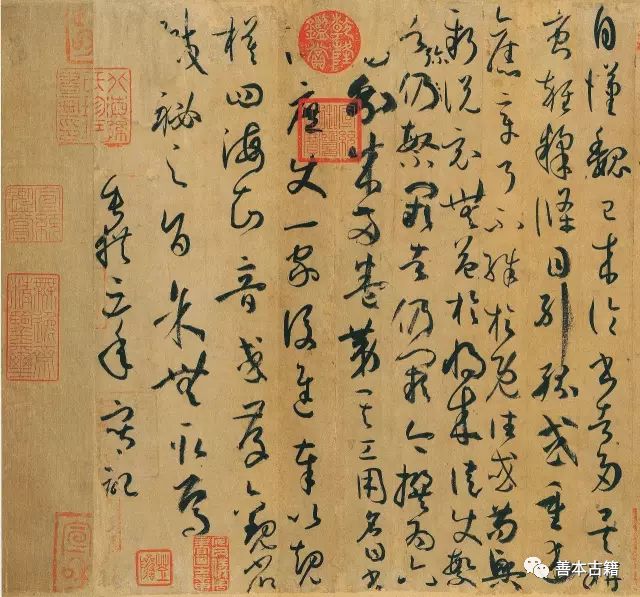 自漢魏已来論書者多矣妍
蚩雜糅條目糾紛或重述
舊章了不殊於既往或苟興
新說竟無益於將来徒使繁
者弥繁闕者仍闕今撰為六
篇分成兩卷第其工用名曰書
譜庶使一家後進奉以規
模四海知音或存觀省
緘秘之旨余無取焉
垂拱三年寫記
善本古籍